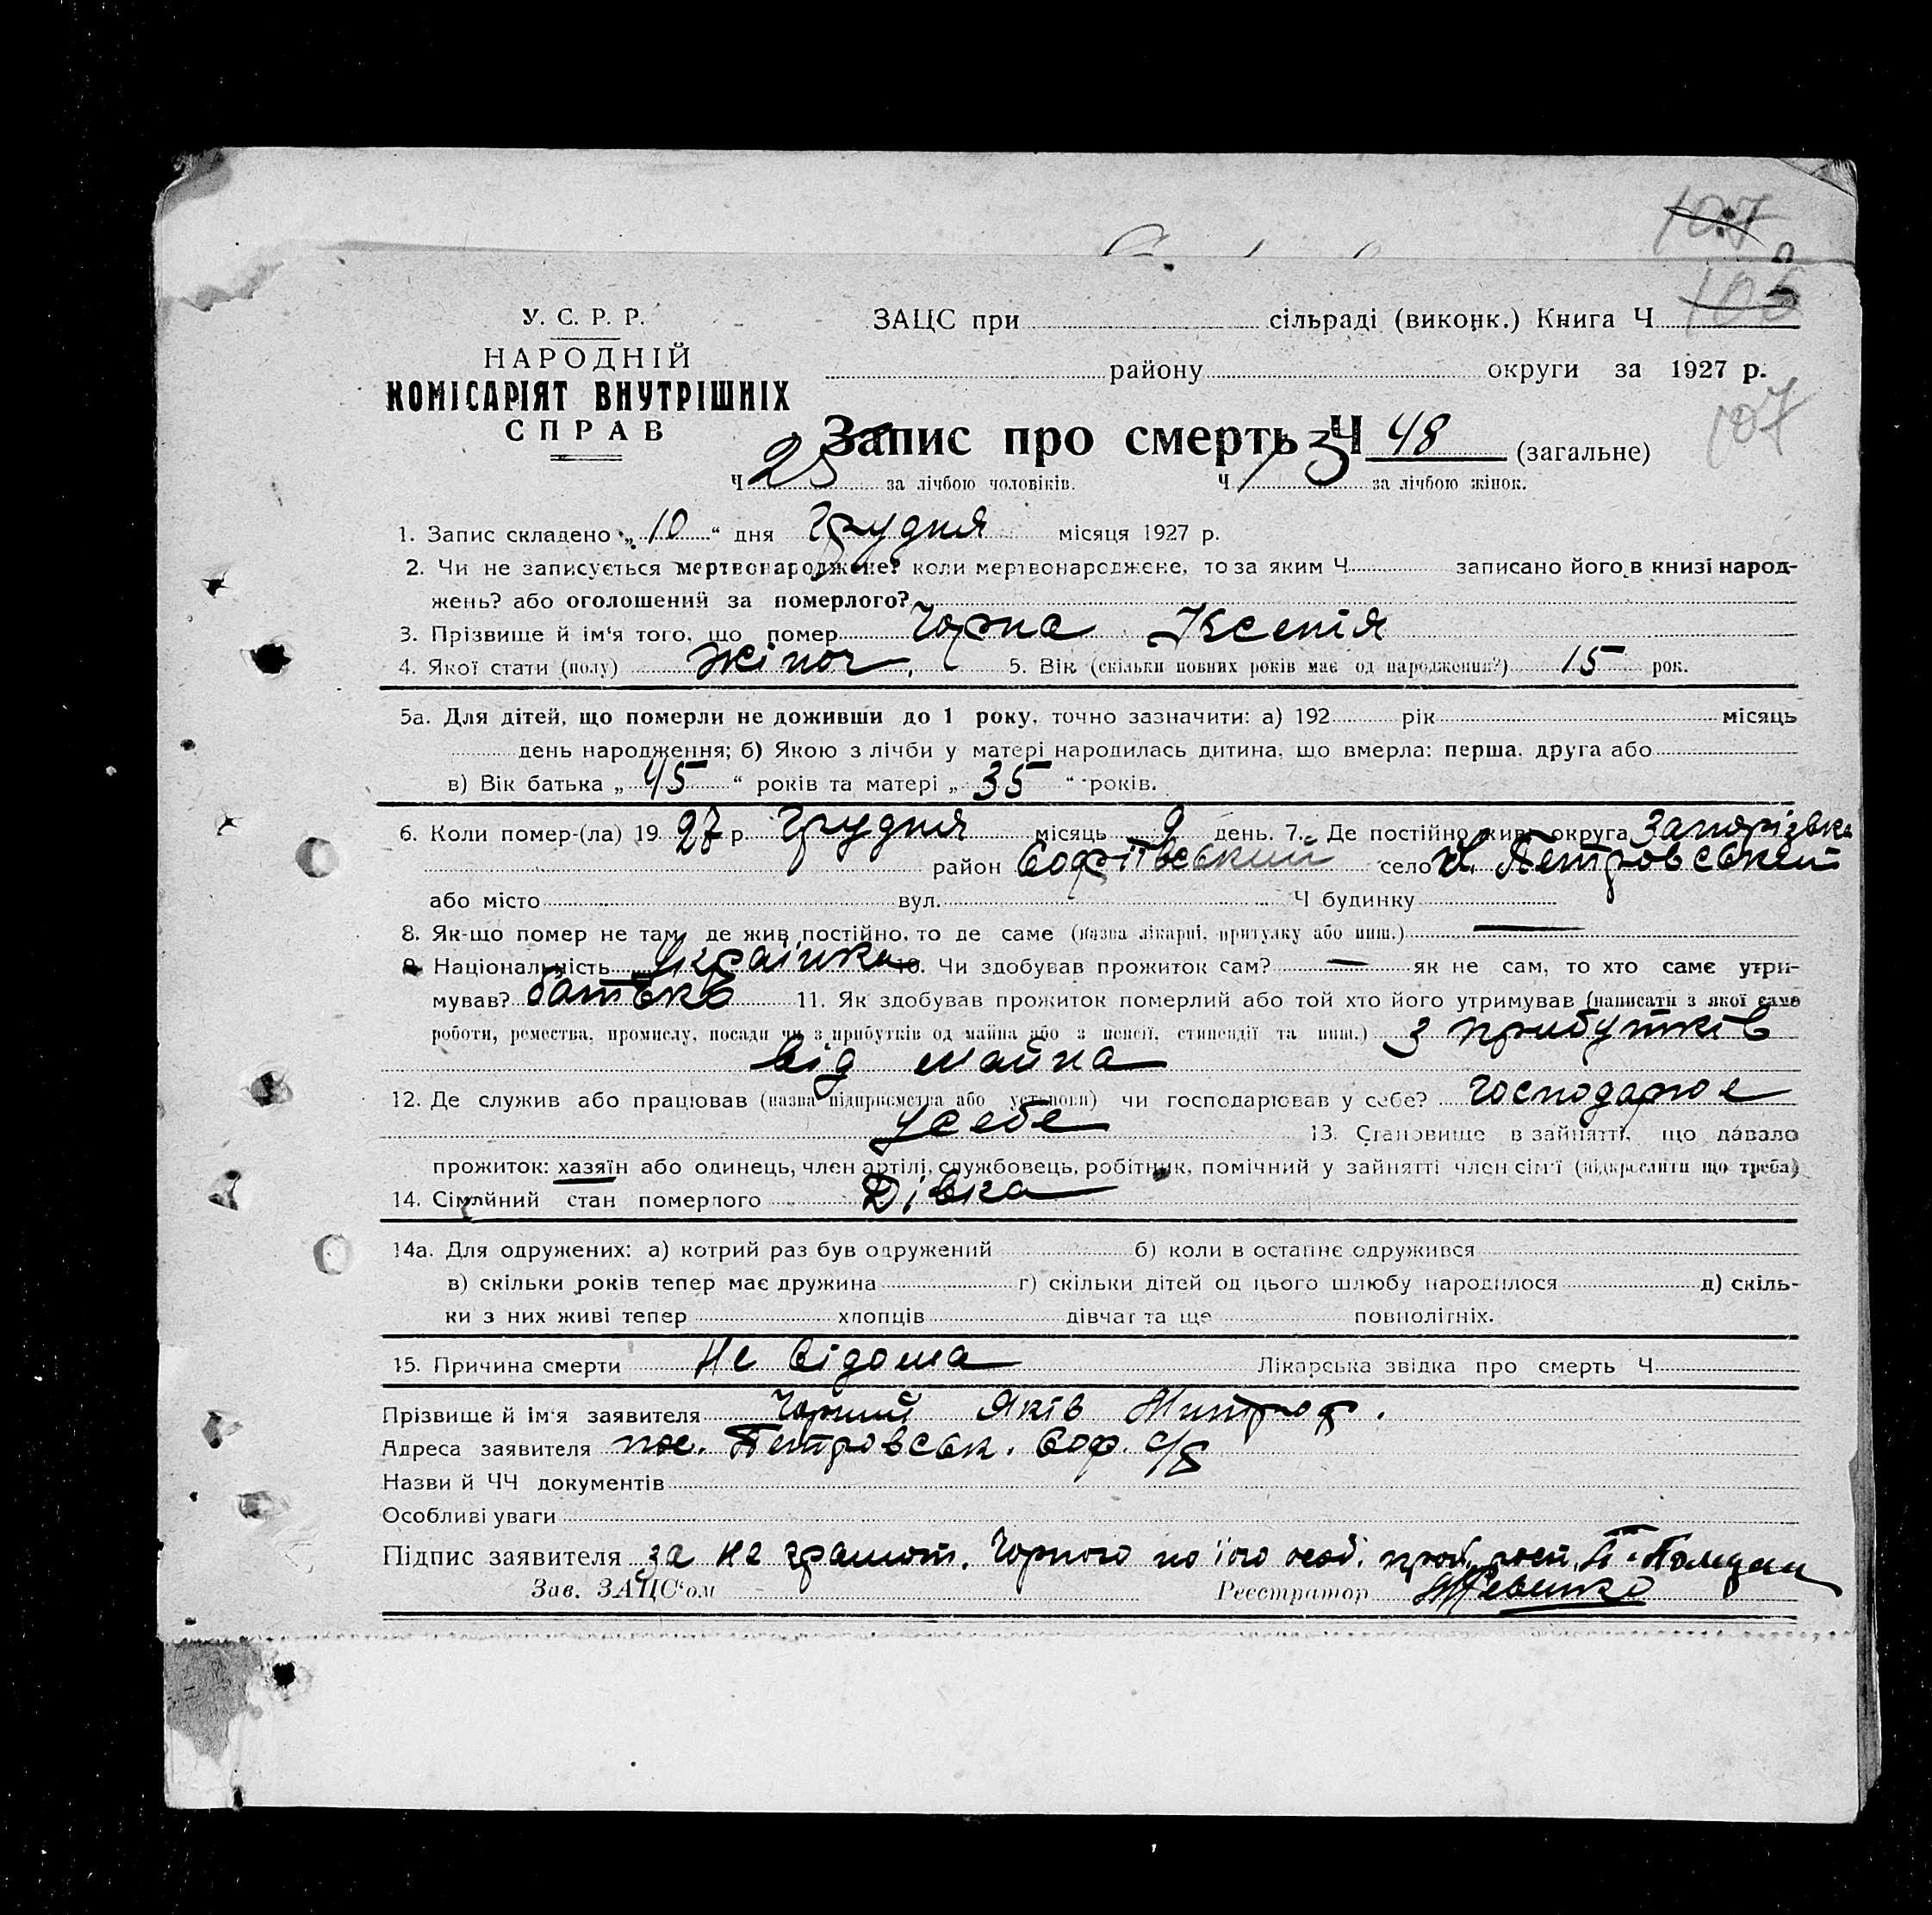 107
105
У. С. Р. Р.
НАРОДНІЙ
КОМІСАРІЯТ ВНУТРІШНІХ
СПРАВ
ЗАЦС при сільраді (виконк.) Книга Ч
району округи за 1927 р.
107
Запис про смерть Ч 48 (загальне)
Ч 25 за лічбою чоловіків. Ч за лічбою жінок.
1. Запис складено „10“ дня Грудня місяця 1927 р.
2. Чи не записується мертвонароджене? коли мертвонароджене, то за яким Ч. записано його в книзі народ-
жень? або оголошений за померлого?
3. Прізвище й ім'я того, що помер Чорна Ксенія
4. Якої стати (полу) жіноч. 5. Вік (скільки повних років має од народження?) 15 рок.
5а. Для дітей, що померли не доживши до 1 року, точно зазначити: а) 192 рік місяць
день народження; б) Якою з лічби у матері народилась дитина, що вмерла: перша, друга або
в) Вік батька „45“ років та матері „35“ років.
6. Коли помер-(ла) 1927 р. Грудня місяць 9 день. 7. Де постійно жив: округа Запорізька
район Софіївський село Петровський
або місто вул. Ч будинку
8. Як-що помер не там, де жив постійно, то де саме (назва лікарні, притулку або инш.) —
9. Національність Українка 10. Чи здобував прожиток сам? — як не сам, то хто саме утри-
мував? батько 11. Як здобував прожиток померлий або той хто його утримував (написати з якої саме
роботи, ремества, промислу, посади чи з прибутків од майна або з пенсії, стипендії та инш.) з прибутків
від майна
12. Де служив або працював (назва підприємства або установи) чи господарював у себе? господарює
у себе 13. Становище в зайнятті, що давало
прожиток: хазяїн або одинець, член артілі, службовець, робітник, помічний у зайнятті член сім'ї (підкреслити що треба)
14. Сімейний стан померлого Дівка
14а. Для одружених: а) котрий раз був одружений б) коли в останнє одружився
в) скільки років тепер має дружина г) скільки дітей од цього шлюбу народилося д) скіль-
ки з них живі тепер хлопців дівчат та ще повнолітніх.
15. Причина смерти Не відома Лікарська звідка про смерть Ч
Прізвище й ім'я заявителя Чорний Яків Митроф.
Адреса заявителя пос. Петровськ. Соф. с/р
Назви й ЧЧ документів
Особливі уваги
Підпис заявителя за не грамот. Чорного по його особ.
Зав. ЗАЦС'ом Реєстратор